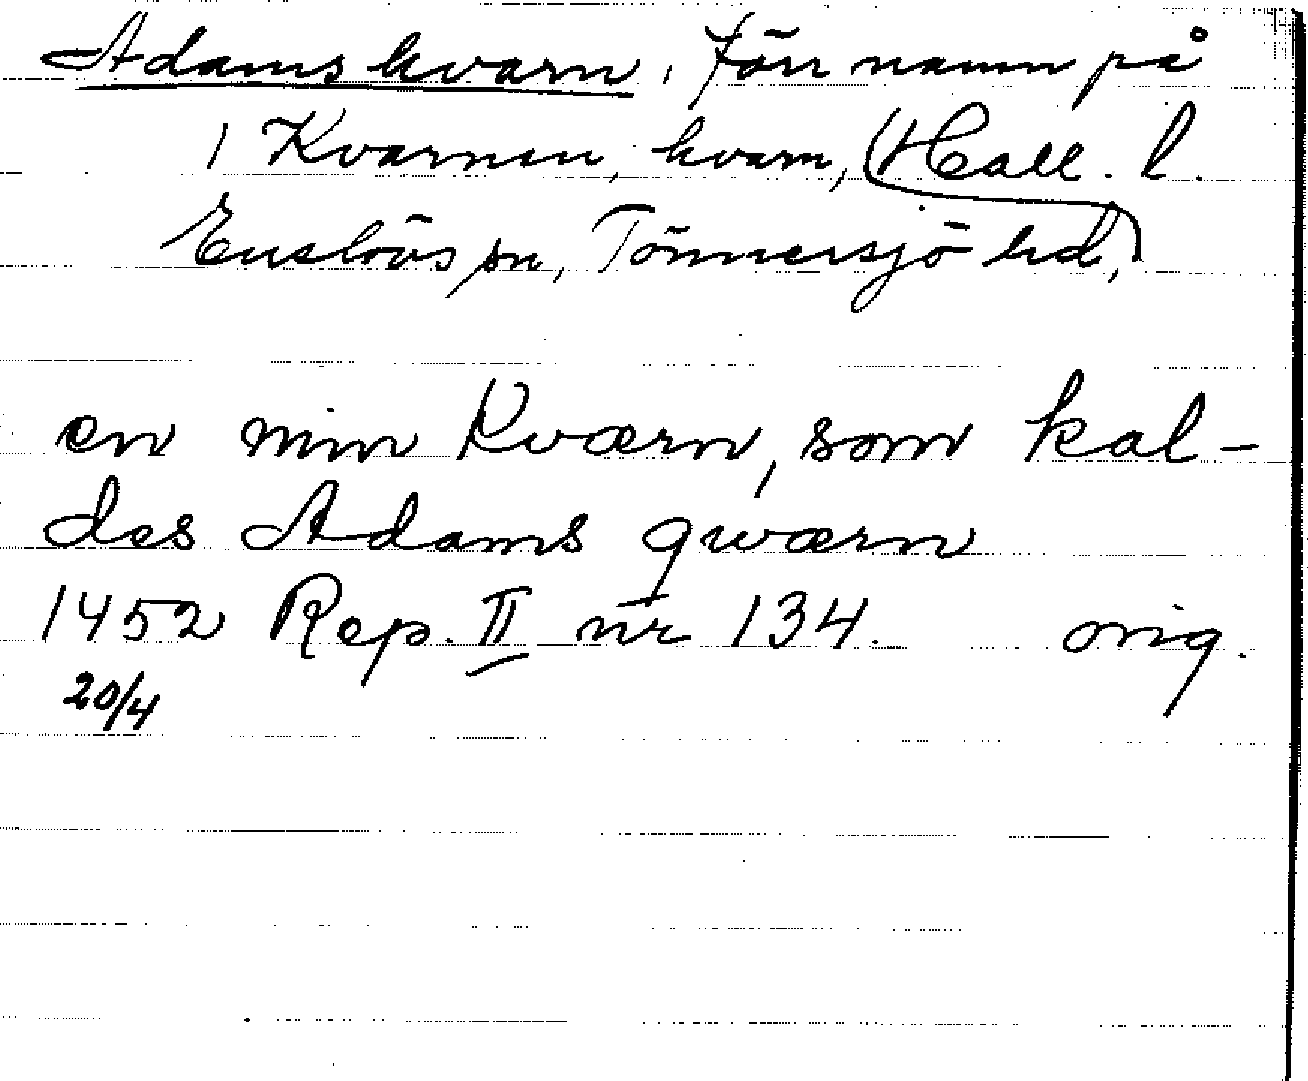 Adams kvarn, förr namn på
1 Kvarnen, kvarn, (Hall. l.
Enslövs sn, Tönnersjö hd,)
en min Kværn, som kal-
des Adams qwærn
1452 Rep. II nr 134. orig.
20/4